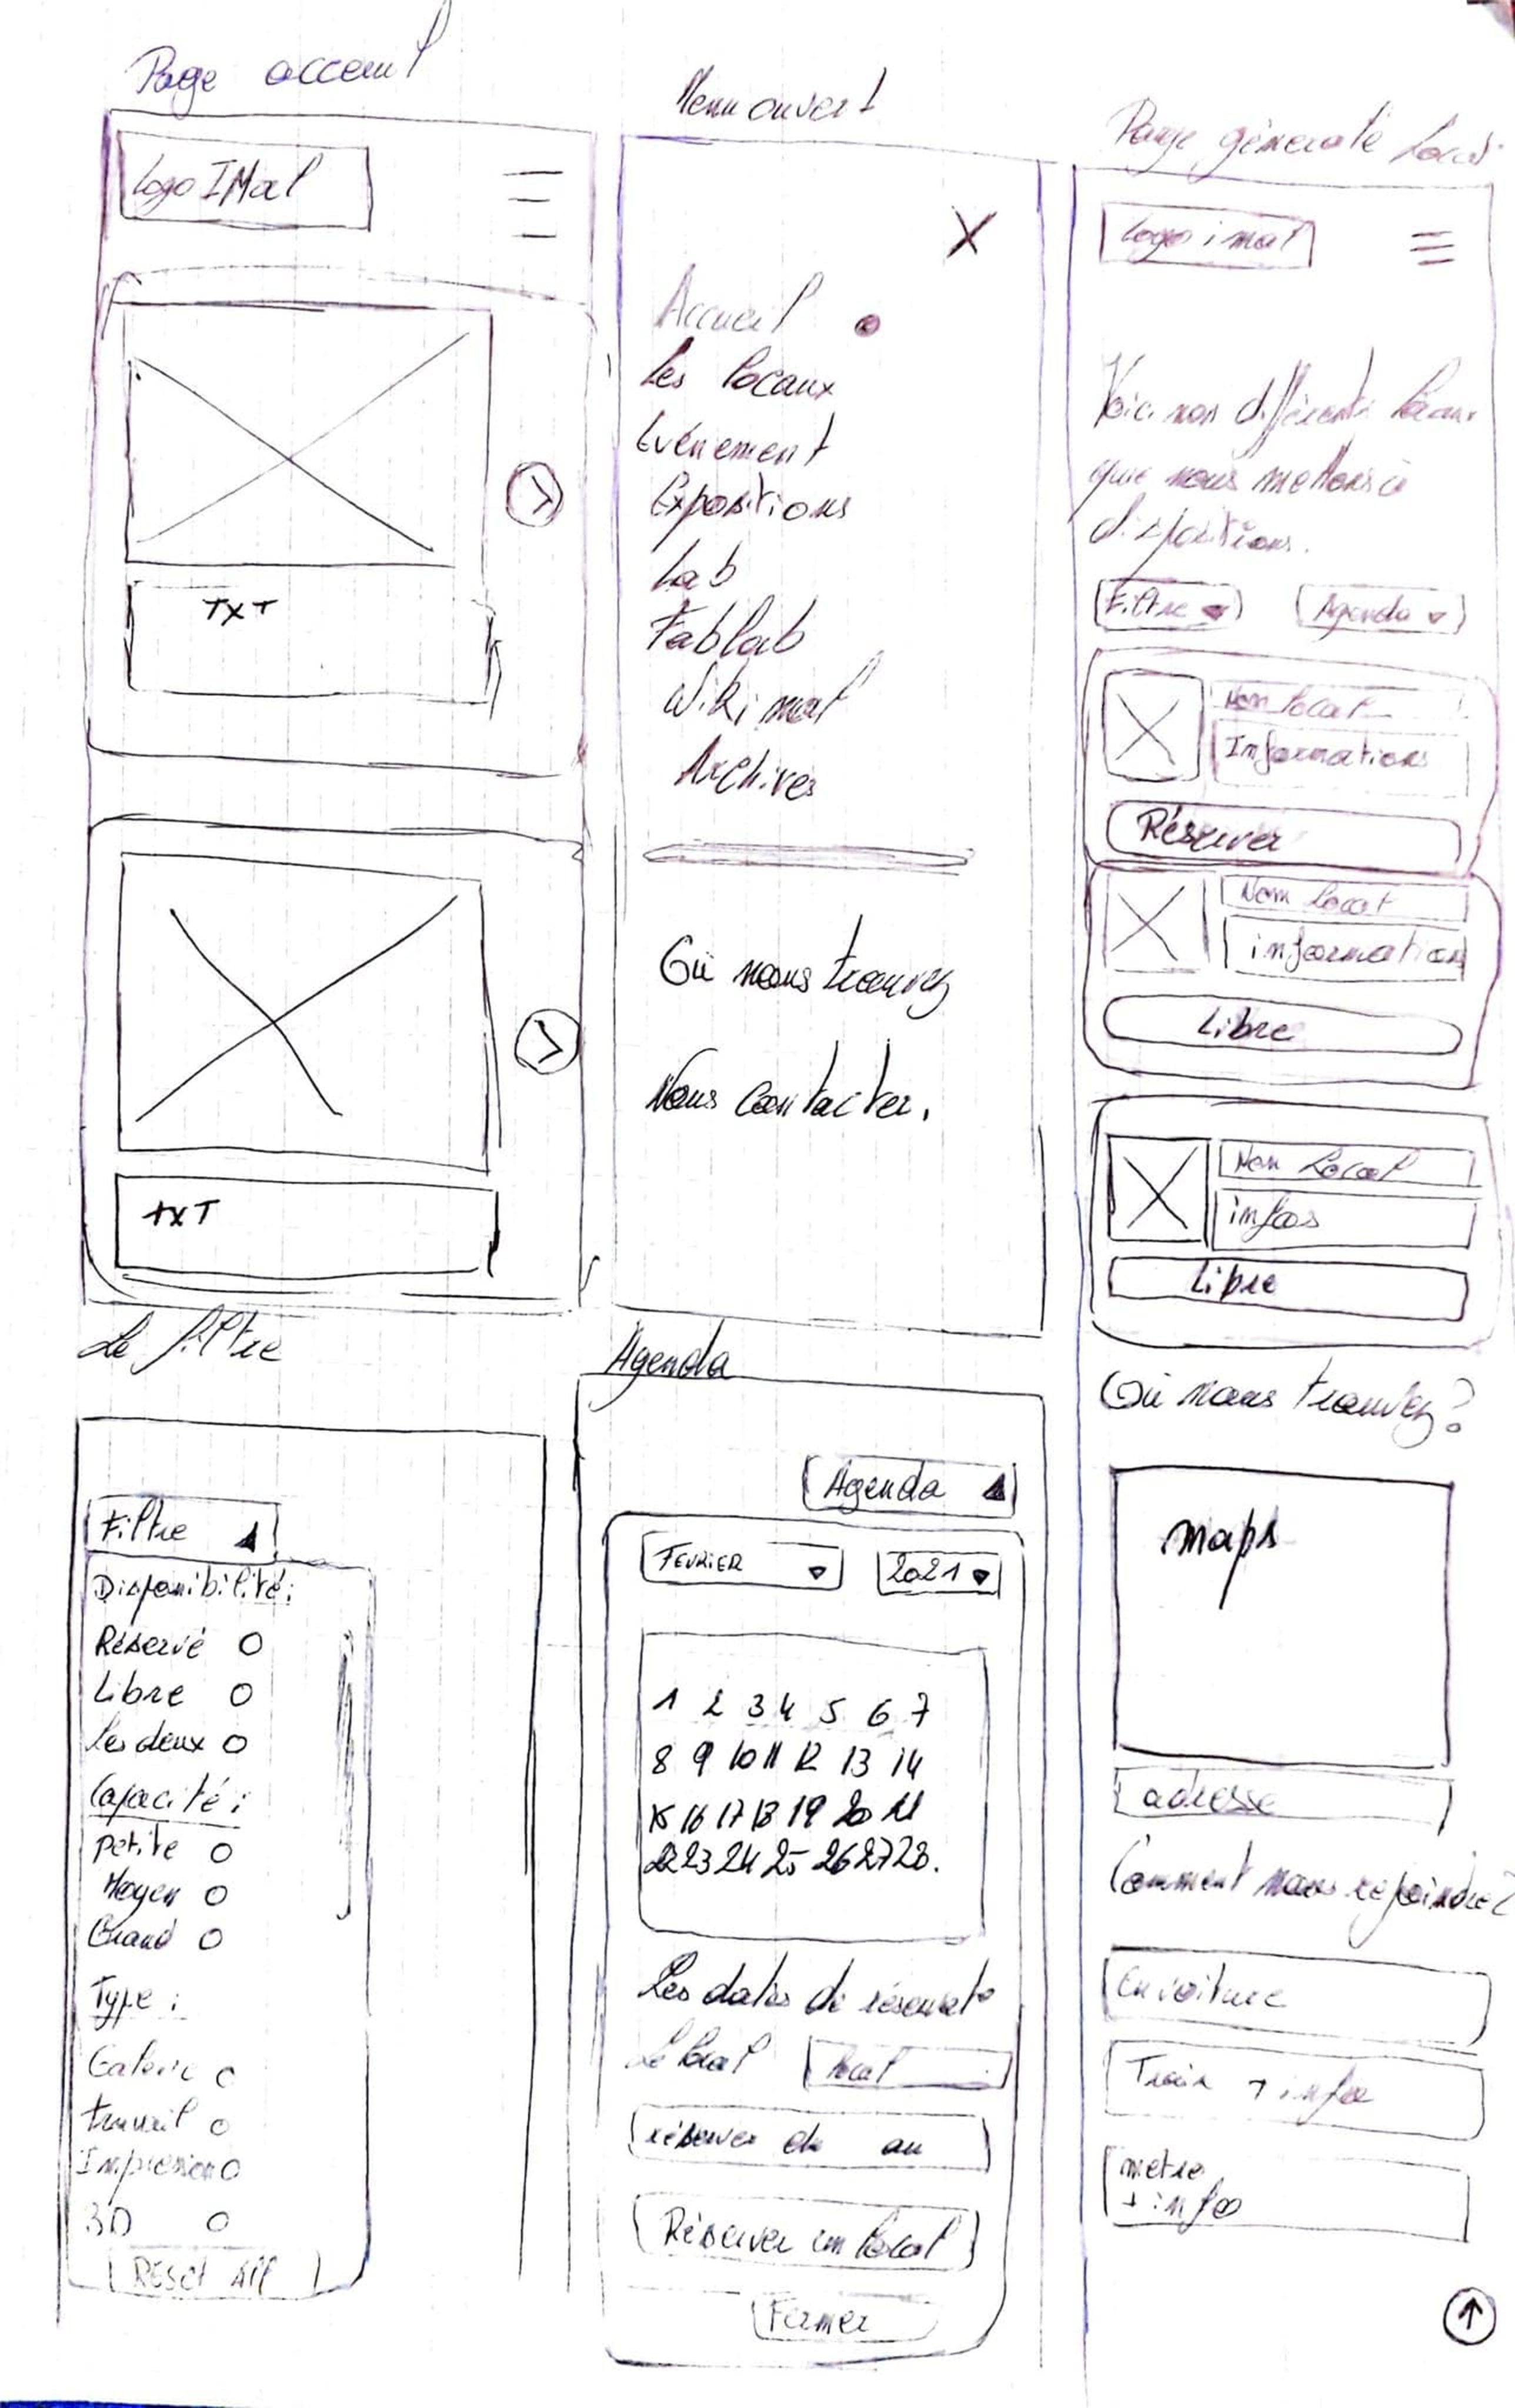 Page acceuil
Logo IMal
TXT
TXT
Menu ouvert
X
Accueil
Les locaux
Evénement
Expositions
Lab
Fablab
Wiki mal
Archives
Où nous trouvez
Nous contacter.
Page générale local
Logo imal
Voici nos différents locaux
que nous mettons à
dispositions.
Filtre
Agenda
Nom local
Informations
Réserver
Nom local
information
Libre
Nom Local
infos
Libre
Où nous trouvez?
maps
adresse
Comment nous rejoindre?
En voiture
Train + info
metro
+ info
Le filtre
Filtre
Disponibilité:
Réservé
Libre
Les deux
Capacité:
Petite
Moyen
Grand
Type:
Galerie
travail
Impression
3D
Reset All
Agenda
Agenda
FEVRIER
2021
1 2 3 4 5 6 7
8 9 10 11 12 13 14
15 16 17 18 19 20 21
22 23 24 25 26 27 28.
Les dates de réservat°
Le local
local
réserver du au
Réserver un local
Fermer